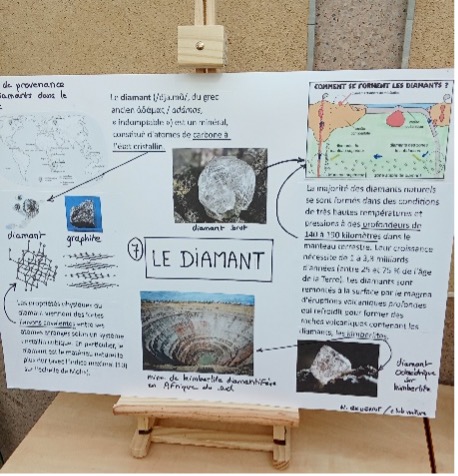 de provenance
diamants dans le
Le diamant ([djamɑ̃], du grec
ancien ἀδάμας / adámas,
« indomptable ») est un minéral,
constitué d'atomes de carbone à
l'état cristallin.
COMMENT SE FORMENT LES DIAMANTS ?
diamant brut
diamant
graphite
7
LE DIAMANT
La majorité des diamants naturels
se sont formés dans des conditions
de très hautes températures et
pressions à des profondeurs de
140 à 190 kilomètres dans le
manteau terrestre. Leur croissance
nécessite de 1 à 3,3 milliards
d'années (entre 25 et 75 % de l'âge
de la Terre). Les diamants sont
remontés à la surface par le magma
d'éruptions volcaniques profondes
qui refroidit pour former des
roches volcaniques contenant les
diamants, les kimberlites.
Les propriétés physiques du
diamant viennent des fortes
liaisons covalentes entre ses
atomes arrangés selon un système
cristallin cubique. En particulier, le
diamant est le matériau naturel le
plus dur
sur l'échelle de Mohs).
mine de kimberlite diamantifère
en Afrique du Sud
diamant
octaédrique
sur
kimberlite
/ club nature